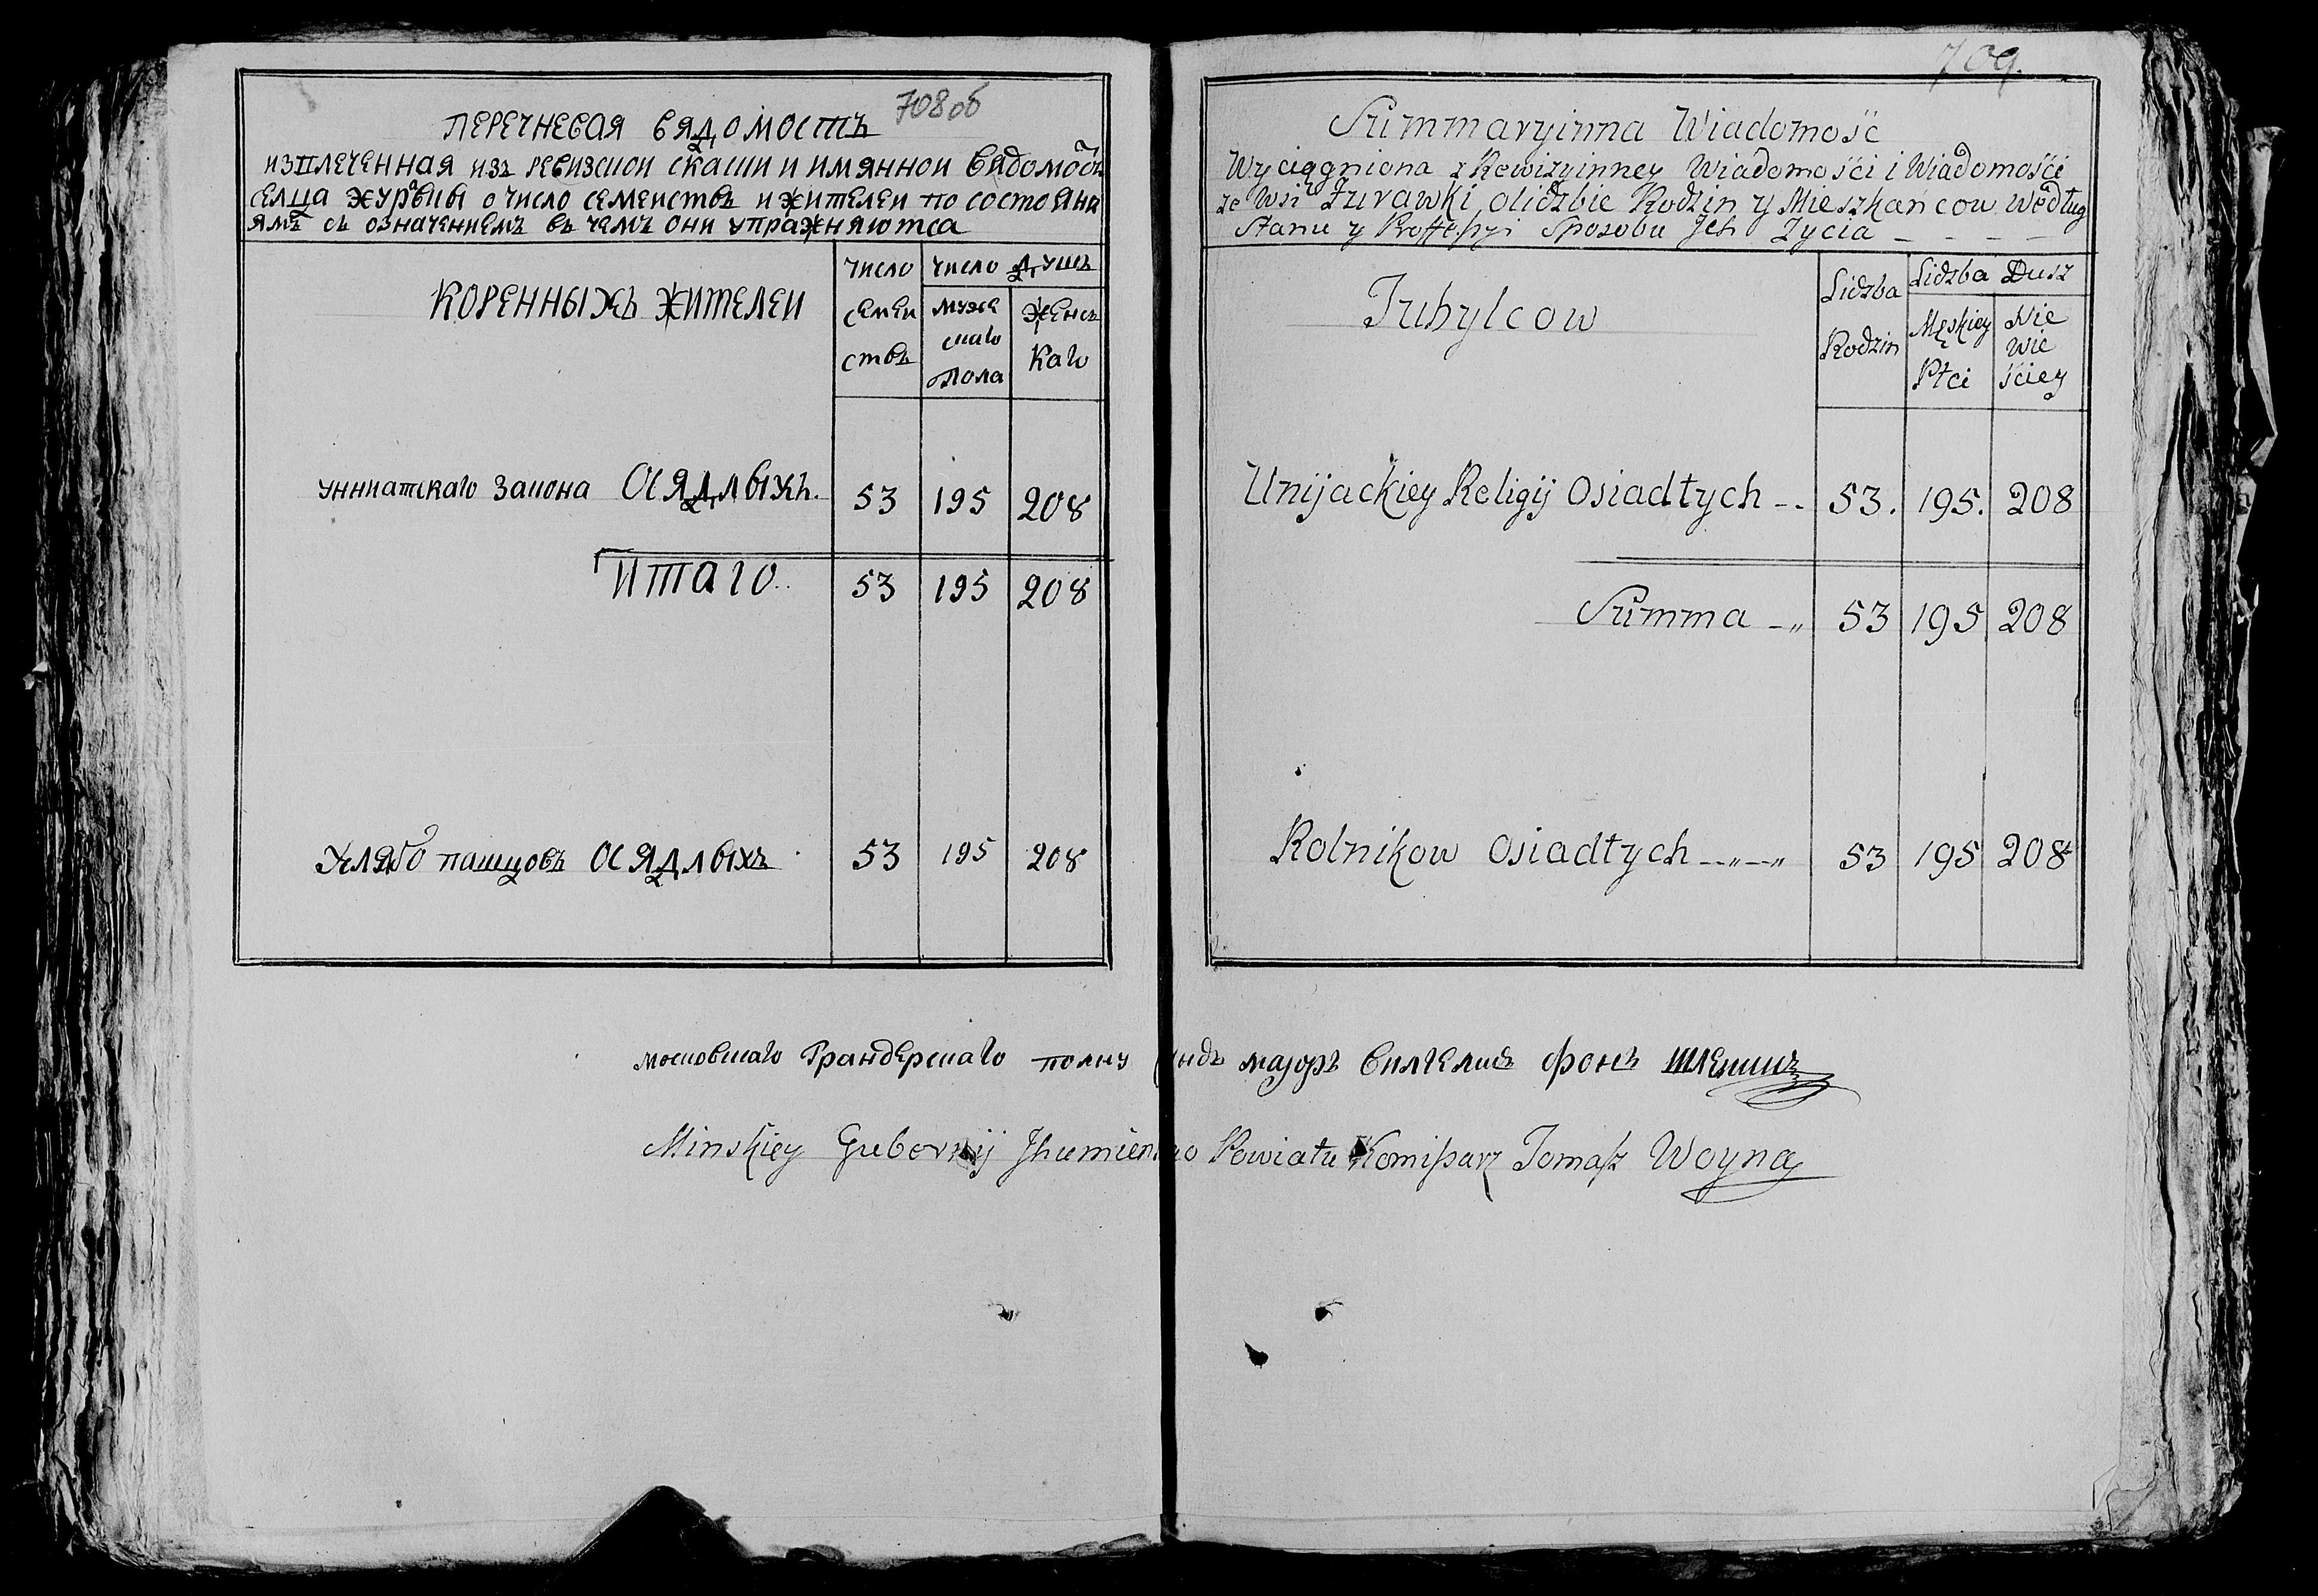 708 об
ПЕРЕЧНЕВАЯ ВЯДОМОСТЬ
ИЗВЛЕЧЕННАЯ ИЗЪ РЕВИЗСКОИ СКАСКИ И ИМЯННОИ ВЯДОМОСТИ
СЕЛЦА О ЧИСЛО СЕМЕИСТВЪ И ЖИТЕЛЕИ ПО СОСТОЯНИ
ЯМЪ СЪ ОЗНАЧЕНИЕМЪ ВЪ ЧЕМЪ ОНИ УПРАЖНЯЮТСА
КОРЕННЫХЪ ЖИТЕЛЕИ
ЧИСЛО
СЕМЕИ
СТВЪ
ЧИСЛО ДУШЪ
МУЖЕ
СКАГО
ПОЛА
ЖЕНСЪ
КАГО
УННИАТСКАГО ЗАКОНА ОСЯДЛЫХЪ. 53 195 208
ИТАГО.. 53 195 208
ХЛЯБО ПАШЦОВЪ ОСЯДЛЫХЪ 53 195 208
709.
Summaryinna Wiadomość
Wyciągniona z Rewizyinney Wiadomości i Wiadomości
ze Wsi Żurawki o lidzbie Rodzin y Mieszkancow według
Stanu y Proffeßyi Sposobu Jch Zycia _ _ _ _
Tubylcow
Lidzba
Rodzin
Lidzba Dusz
Męskiey
Płci
Nie
wie
ściey
Unijackiey Religij Osiadłych -. 53. 195. 208
Summa -„ 53 195 208
Rolnikow Osiadłych --„--„ 53 195 208
Московскаго Грандерскаго полку Секундъ маjоръ Вилгелмъ фонъ
Minskiey Gubernij Jhumienskiego Powiatu Komißarz Tomaß Woyna